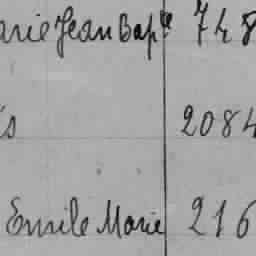 arie Jean Bapte 748
is 2084
Emile Marie 216